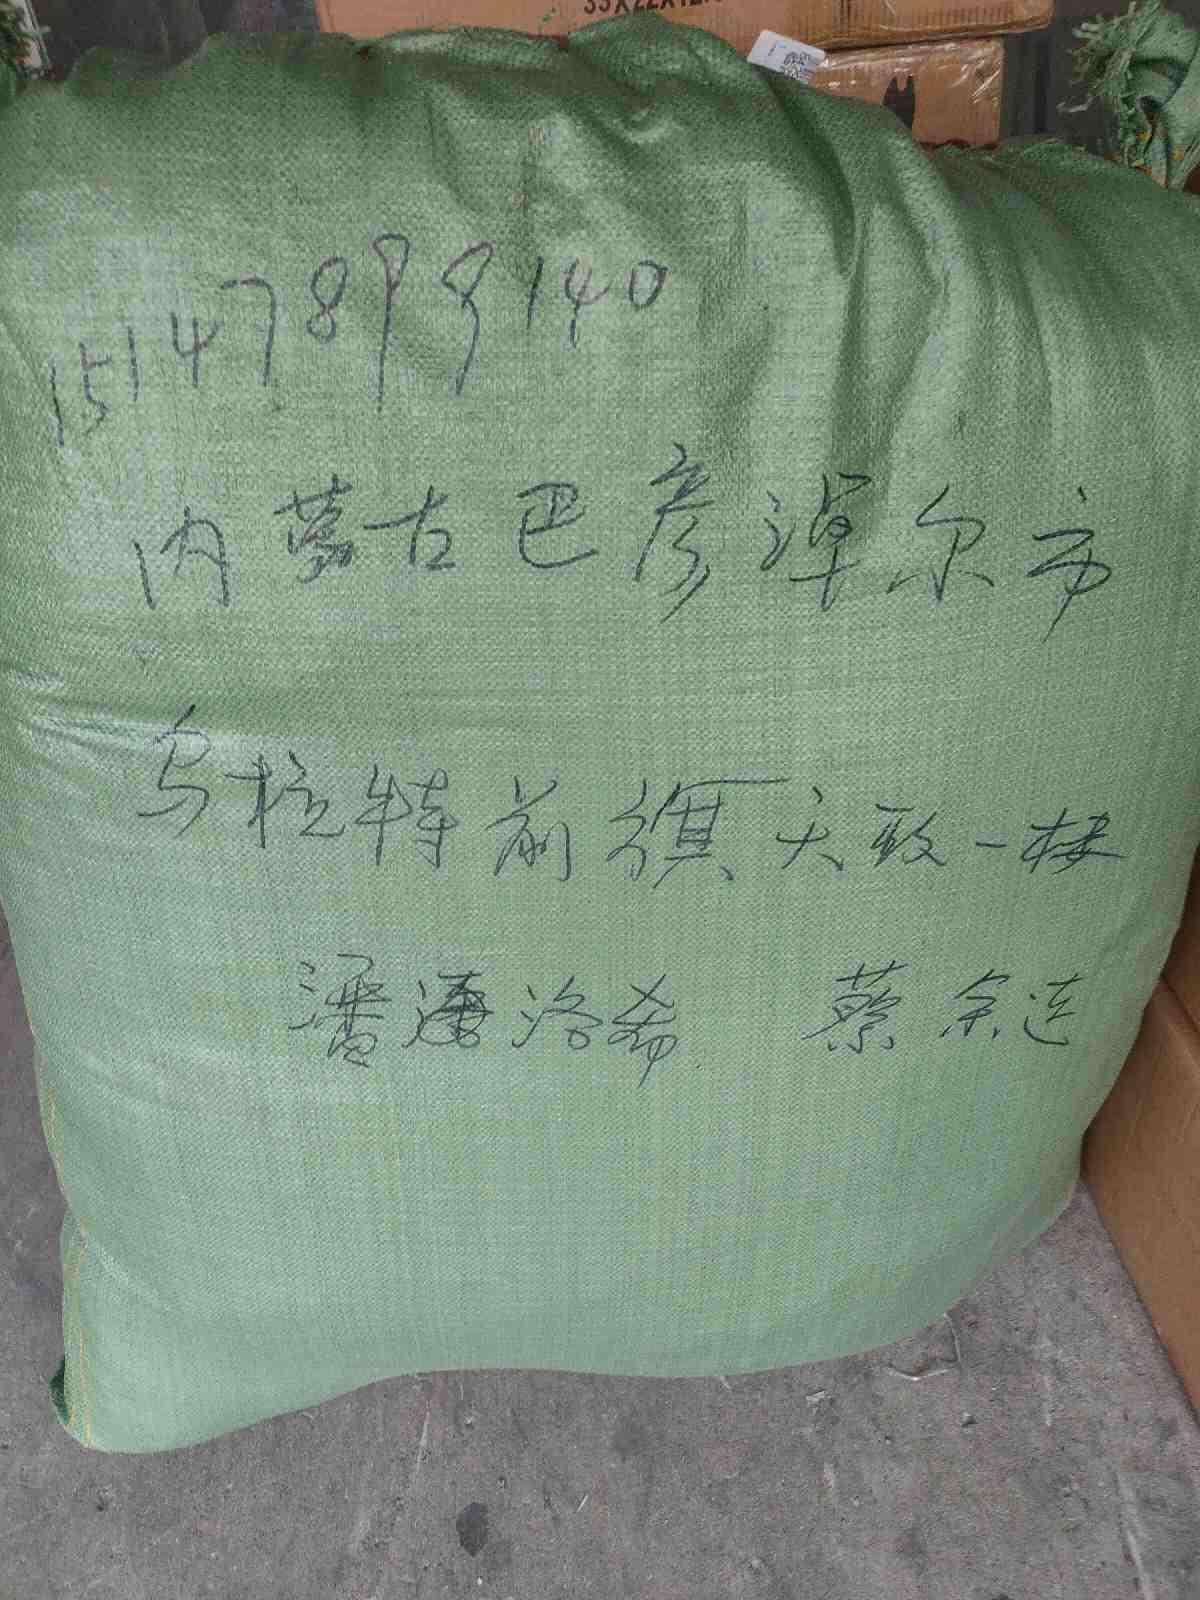 15147899140
内蒙古巴彦淖尔市
乌拉特前旗大政一楼
潘洛希 蔡余连